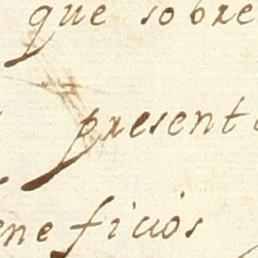 que sobre
present
ene ficios